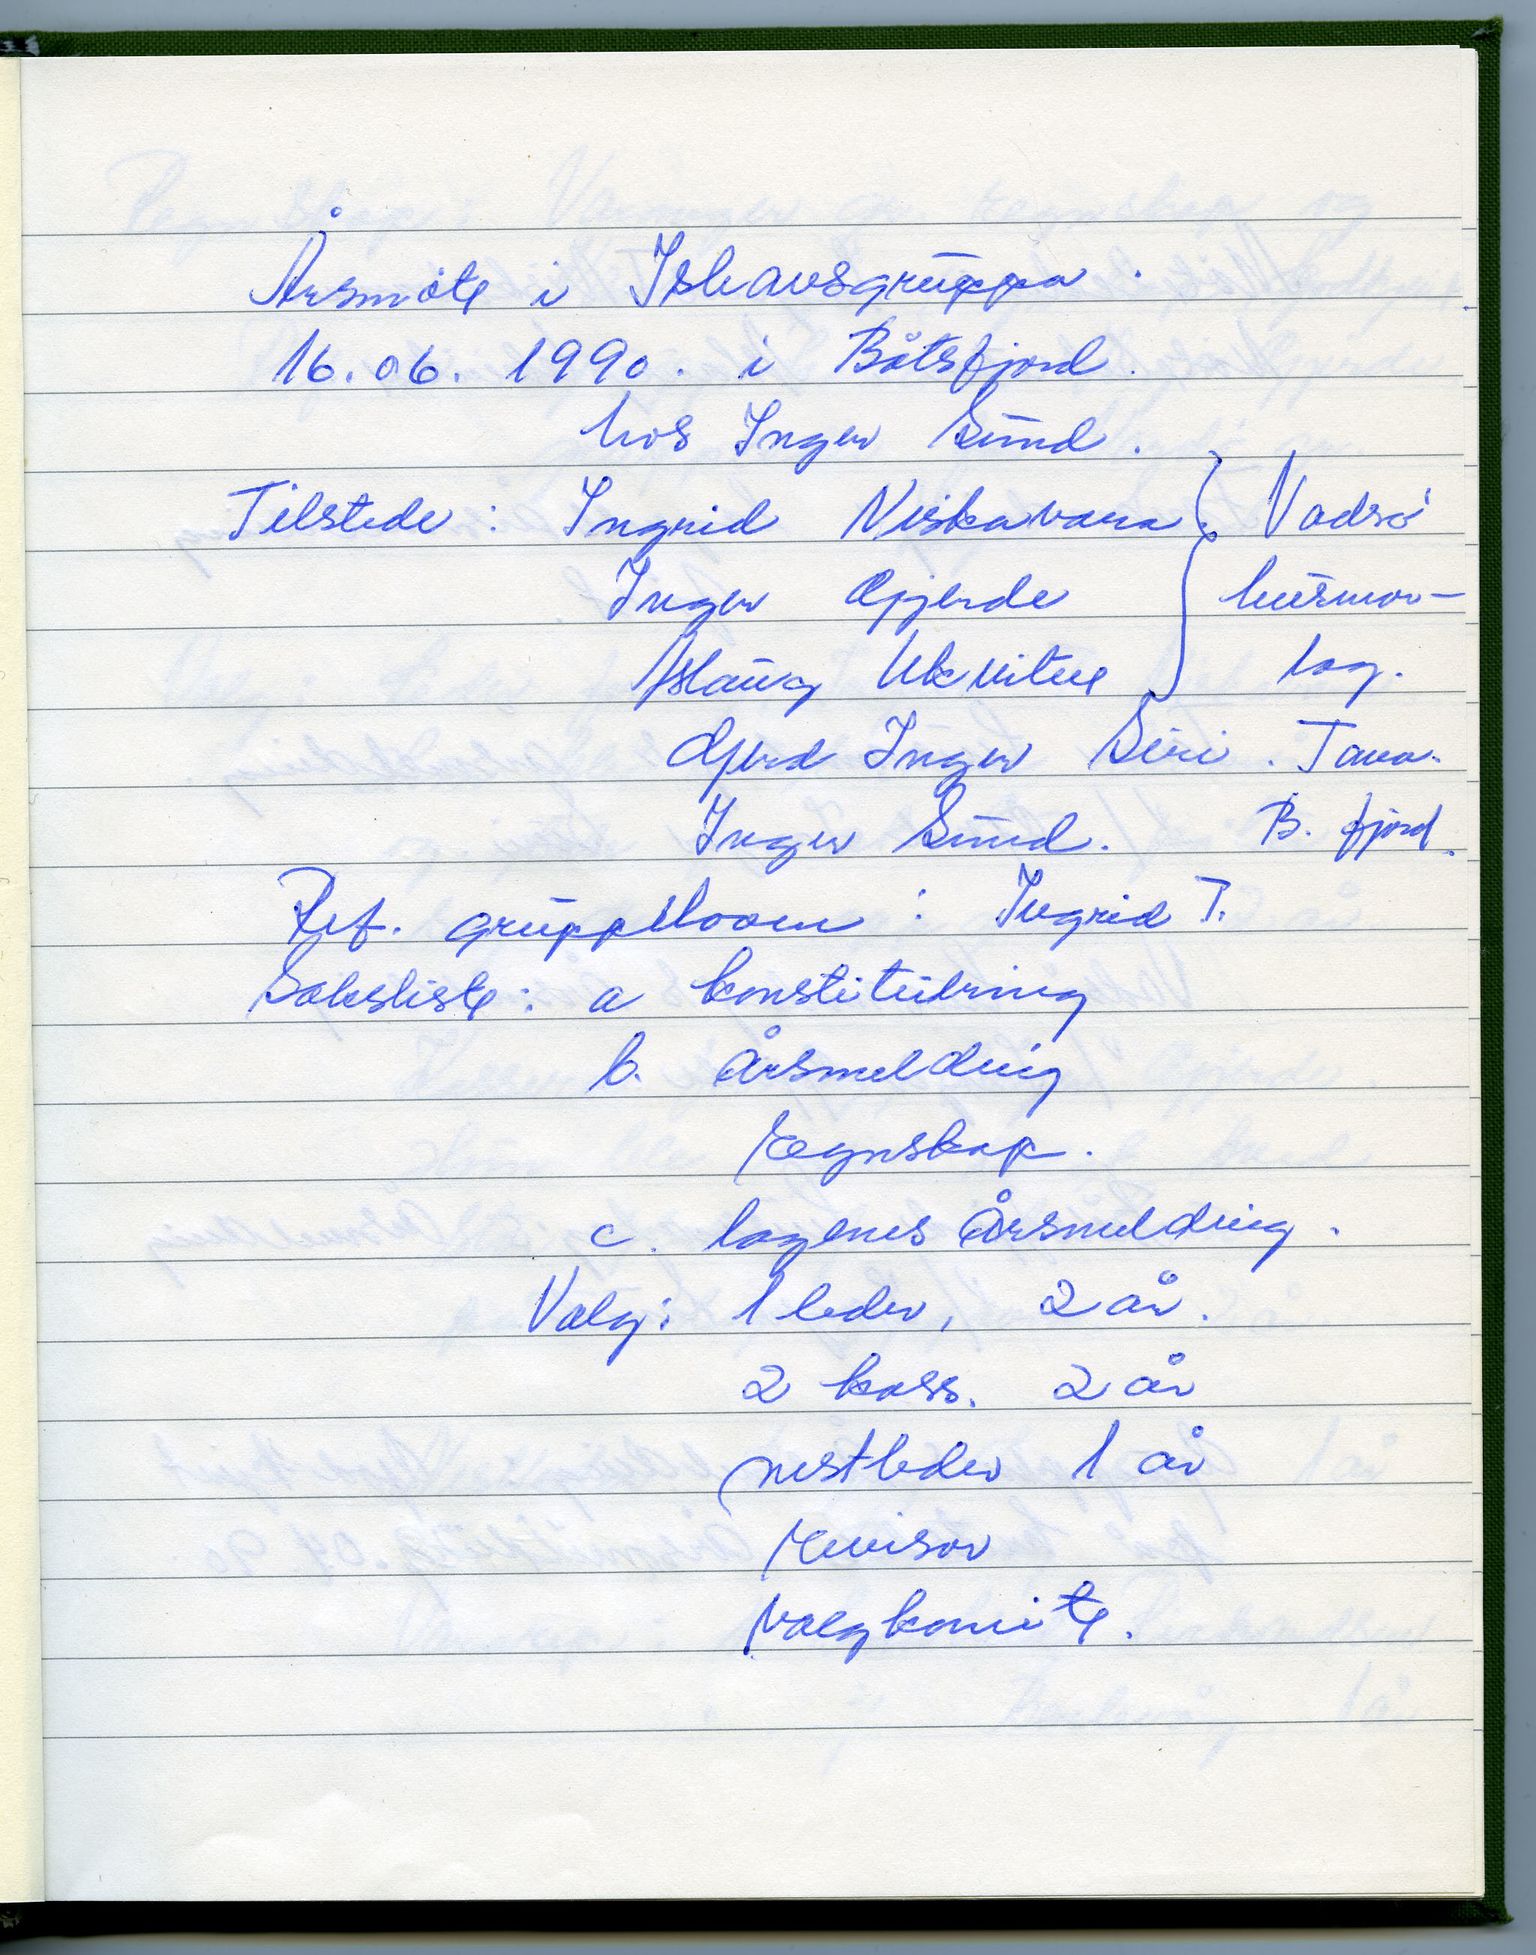 Årsmøte i Ishavsgruppa.
16.06.1990. i Båtsfjord.
hos Inger Sund.
Tilstede: Ingrid Niskavara. Vadsø
Inger Gjerde husmor-
Aslaug Ekvitne lag.
Gjerd Inger Siri. Tana.
Inger Sund. B. fjord.
Ref. : Ingrid T.
Saksliste: a konstituering
b. Årsmelding
regnskap.
c. lagenes Årsmelding.
Valg: 1 leder, 2 år.
2 kass. 2 år
nestleder 1 år
revisor
valgkomite.